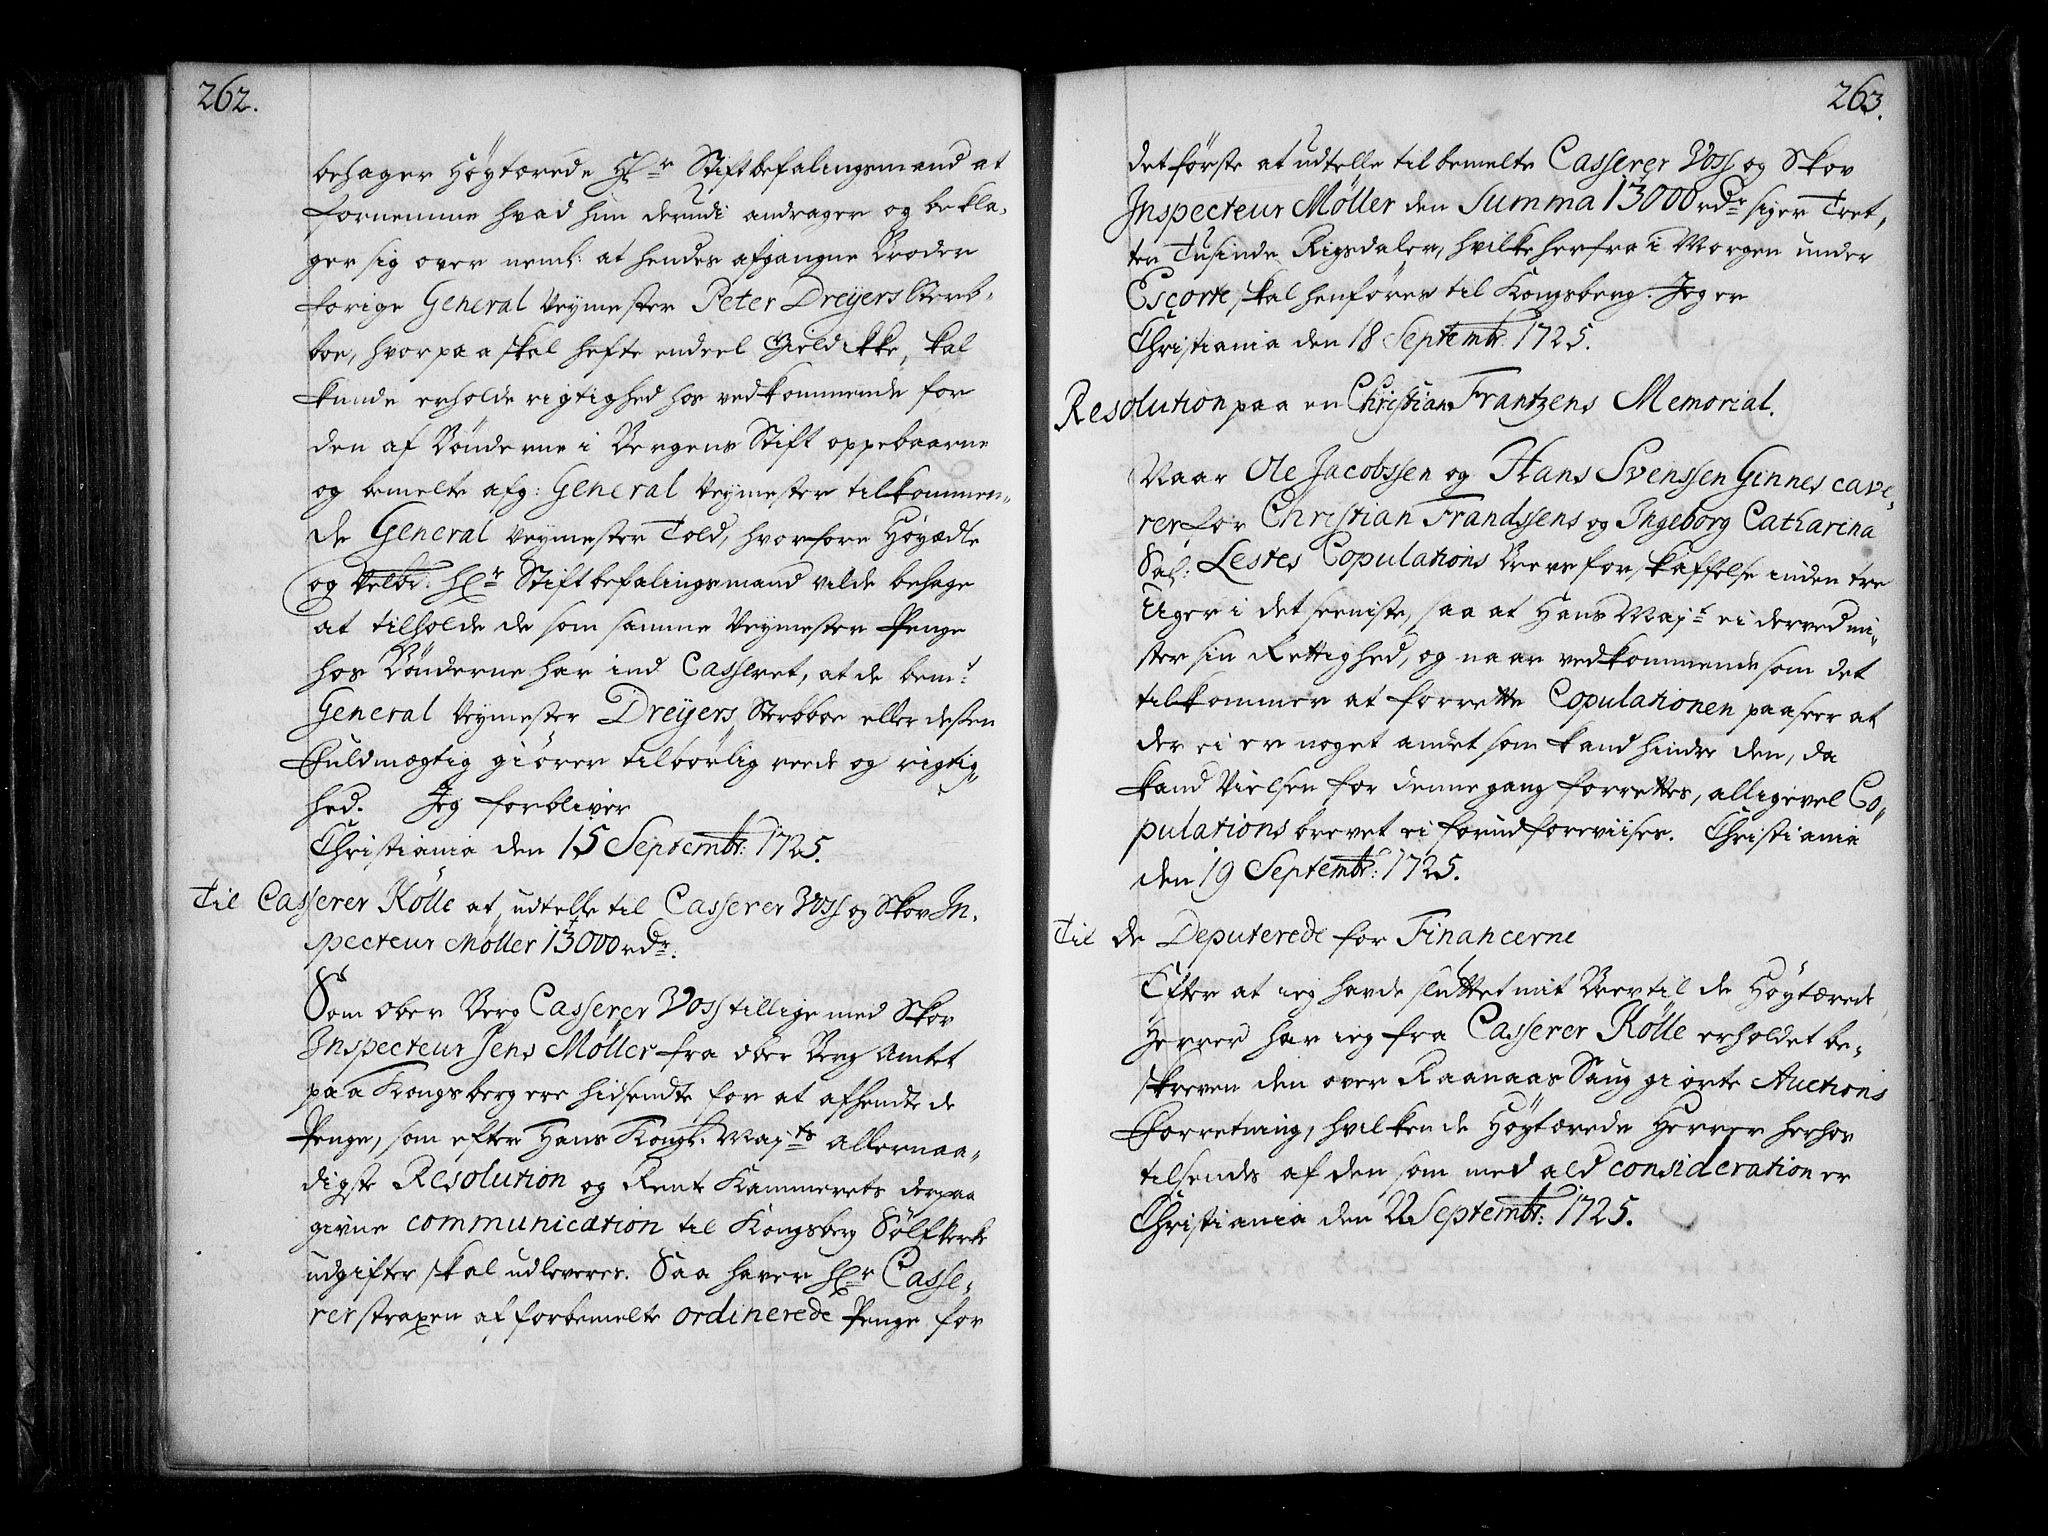 262.
behager Höytærede Hr Stiftbefalingsmand at
fornemme hvad hun derudi andrager og bekla,
ger sig over neml: at hendes afgangne Broder
forige General Veymester Peter Dreyers Sterb-
boe, hvorpaa skal hefte endeel Gield ikke, skal
kunde erholde rigtighed hos vedkommende for
den af Bönderne i Bergens Stift oppebaarne
og bemelte afg: General Veymester tilkommen„
de General Veymester Told, hvorfore Höyædle
og Velbr: Hr Stiftbefalingsmand vilde behage
at tilholde de som samme Veymester Penge
hos Bönderne har ind Casseret, at de bemt:
General Veymester Dreyers Sterbboe eller dessen
Fuldmægtig giører tilbørlig rede og rigtig„
hed. Jeg forbliver
Christiania den 15 Septembr: 1725.
Til Casserer Kölle at udtelle til Casserer Voss og Skov In-
specteur Möller 13000 rdr.
Som ober Berg Casserer Voss tillige med Skov
Inspecteur Jens Möller fra ober Berg Amtet
paa Kongsberg ere hidsendte for at afhendte de
Penge, som efter Hans Kongl: Majts allernaa„
digste Resolution og Rente Kammerets derpaa
givne communication til Kongsberg Sölfverks
udgifter skal udleveres. Saa haver Hr Casse,
rer straxen af forbemelte ordinerede Penge for
263.
det förste at udtelle til bemelte Casserer Voss og Skov
Inspecteur Möller den Summa 13000 rdr siger Tret,
ten Tusinde Rigsdaler, hvilke herfra i Morgen under
Escorte skal henföres til Kongsberg. Jeg er
Christiania den 18 Septembr 1725.
Resolution paa en Christian Frantzens Memorial.
Naar Ole Jacobssen og Hans Svenssen Ginnes cave„
rer for Christian Frandssens og Ingeborg Catharina
Sal: Lestes Copulations Brevs forskaffelse inden tre
Uger i det seeniste, saa at Hans Majt ei derved mi„
ster sin Rettighed, og naar vedkommende som det
tilkommer at forrette Copulationen paaseer at
der ei er noget andet som kand hindre den, da
kand Vielsen for denne gang forrettes, alligevel Co„
pulations brevet ei forud foreviises. Christiania
den 19 Septembr: 1725.
Til de Deputerede for Financerne
Efter at ieg havde sluttet mit Brev til de Höytærede
Herrer har ieg fra Casserer Kölle erholdet be„
skreven den over Raanaas Saug giorte Auctions
Forretning, hvilken de Höytærede Herrer herhos
tilsendes af den som med ald consideration er
Christiania den 22 Septembr: 1725.